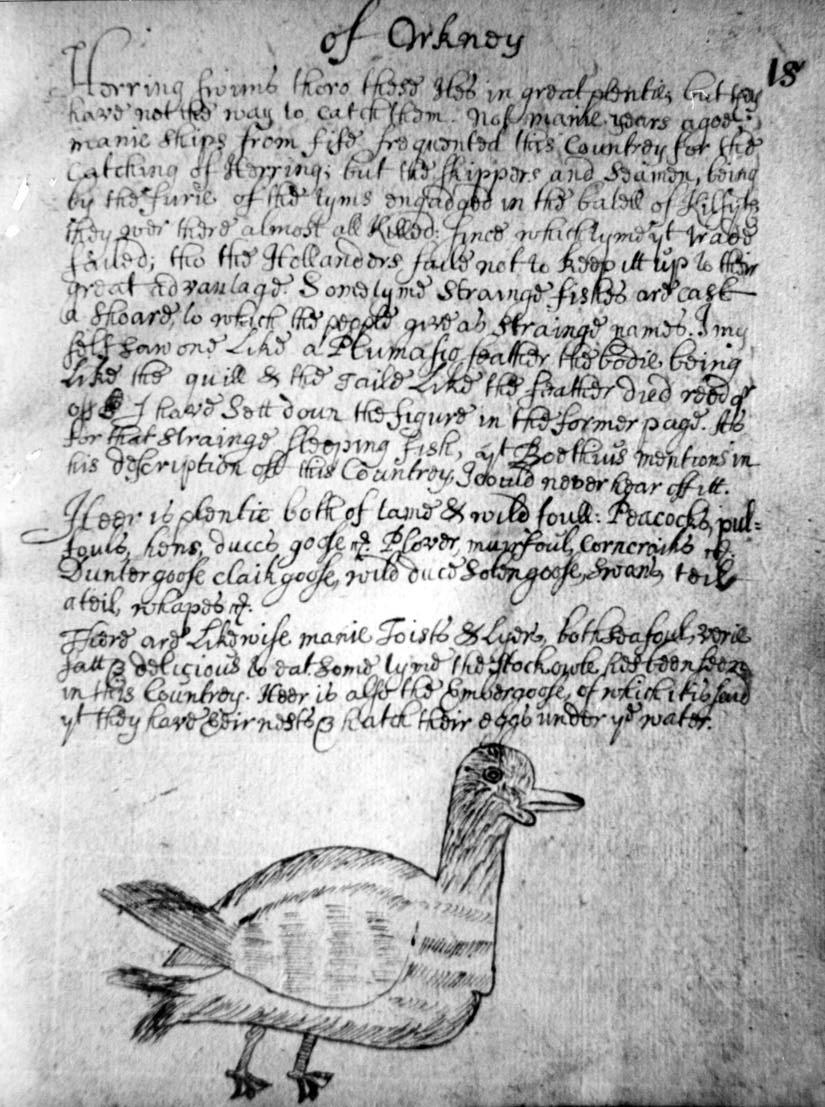 of Orkney
18
Herring swims thoro these Iles in great plentie, but they
have not the way to catch them. Not manie years agoe
manie ships from fife frequented this Countrey for the
Catching of Herring; but the skippers and Seamen, being
by the furie of the tyms engadged in the batell of Kilsyth
they wer there almost all Killed: since which tyme yt trade
failed; tho the Hollanders faile not to keep itt up to their
great advantage. Somtyme strainge fishes are cast
a shoare, to which the people give as strainge names. I my
self saw one Like a Plumasio feather the bodie being
Like the quill & the taile Like the feather died reed
off I have Sett doun the figure in the former page. As
for that strainge sleeping fish, yt Boethius mentions in
his description off this Countrey, I could never hear off itt.
Heer is plentie both of tame & wild foull: Peacocks, pul=
fouls, hens, duccs goose &c. Plover, muirfoul, corncraiks &c.
Dunter goose claik goose, wild duce Solengoose, Swans, teil
ateil, whapes &c.
There are Likewise manie Toists & Lyers, both seafoul, verie
fatt & delicious to eat. Some tyme the Stock owle hes been seen
in this Countrey. Heer is also the Embergoose, of which it is said
yt they have their nests & hatch their eggs under ye water.